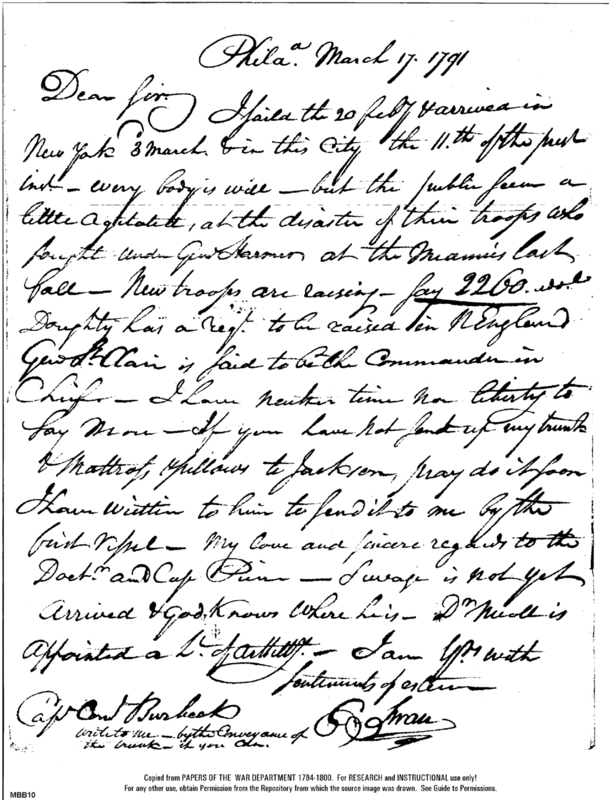 Phila.a March 17. 1791
Dear Sir,
I saild the 20 feby & arrived in
New York 3 march. & in this City the 11.th of the prest
inst - every body is well - but the public seem a
little agitated, at the disaster of their troops who
fought under Genl Harmer at the Miamis last
fall - New troops are raising - say 2260.
Doughty has a regt to be raised in NEngland
Genl St Clair is said to be the Commander in
Chief - I have neither time nor liberty to
say more - If you have not send up my trunk
& Mattrass & pillows to Jackson, pray do it soon
I have written to him to send it to me by the
first Vessel - My love and sincere regards to the
Doctr and Cap Pierce - Savage is not yet
Arrived & God Knows where he is - Dr Nicoll is
appointed a Lt. of Artilly. - I am Yrs with
Sentiments of esteem
Swan
Capt Burbeck
write to me - by the Conveyance of
the trunk - if you can.
Copied from PAPERS OF THE WAR DEPARTMENT 1784-1800. For RESEARCH and INSTRUCTIONAL use only!
For any other use, obtain Permission from the Repository from which the source image was drawn. See Guide to Permissions.
MBB10